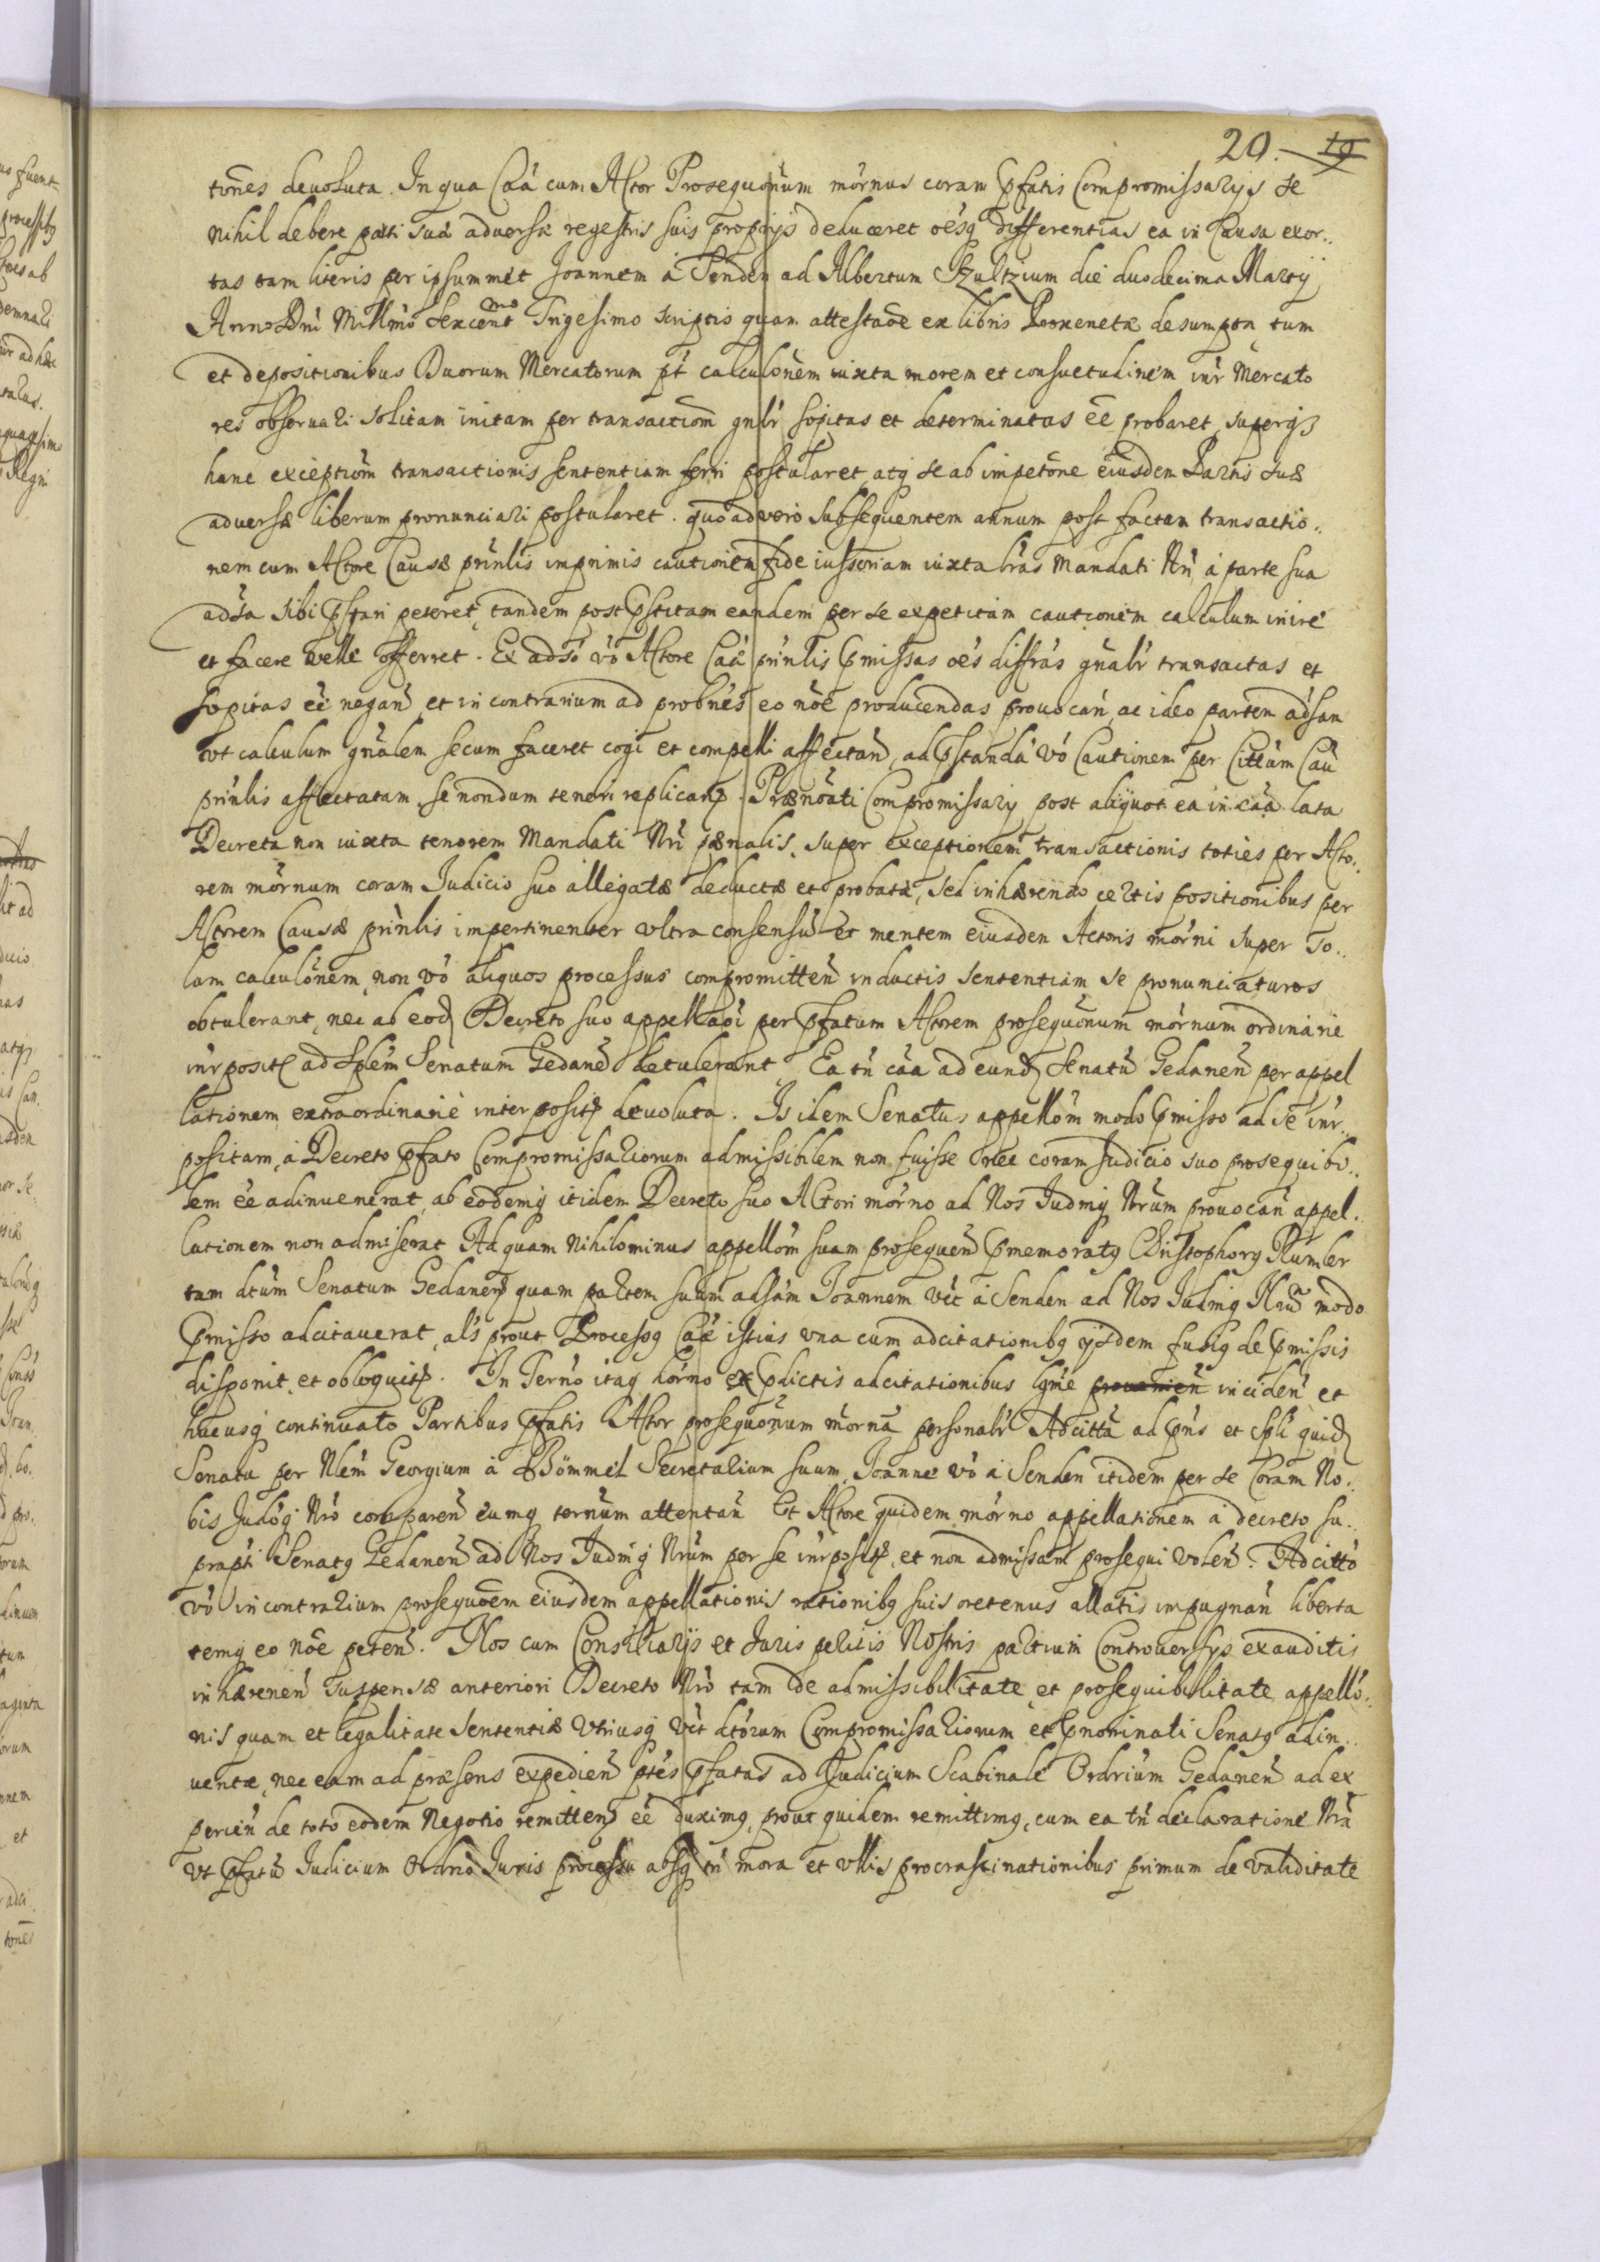 20. 19
tiones devoluta. In qua Caa cum Actor Prosequonum mornus coram Pfatis Compromissarijs se
nihil debere parti sua adversae regestris suis proprijs deduceret oesq differentias ea in Causa exor..
tas tam literis per ipsummet Joannem a Senden ad Albertum Szultzium die duodecima Martij
Anno Dni Millmo Sexcentmo Trigesimo scriptis quam attestaoe ex libris Proxenetae desumpta, tum
et depositionibus Duorum Mercatorum pt calculonem iuxta morem et consuetudinem inr Mercato
res observari solitam initam per transactiom gnlr sopitas et determinatas ee probaret, superq
hanc exceptiom transactionis sententiam ferri postularet, atq se ab impetone eiusdem Partis suae
adversae liberum pronunciari postularet. quoad vero subsequentem annum post factam transactio..
nem cum Actore Causae prinlis imprimis cautionem fide iussoriam iuxta lras Mandati Nri a parte sua
adsa sibi Pstari peteret, tandem post Pstitam eandem per se expetitam cautionem calculum inire
et facere velle offerret. Ex adso vo Actore Caae prinlis Pmissas oes diffras gnalr transactas et
sopitas ee negan et in contrarium ad probnes eo noe producendas provocan, ac ideo partem adsam
vt calculum gnalem secum faceret cogi et compelli affectan, ad Pstanda vo Cautionem per Citeam Caae
prinlis affectatam, se nondum teneri replican. Praenoati Compromissarij post aliquot ea in caa lata
Decreta non iuxta tenorem Mandati Nri paenalis, super exceptionem transactionis toties per Acto..
rem mornum coram Judicio suo allegatae deductae et probatae, sed inhaerendo certis positionibus per
Actorem Causae prinlis impertinenter vltra consensu et mentem eiusdem Actoris morni super so..
lam calculonem, non vo aliquos processus compromitten inductis sententiam se pronunciaturos
obtulerant, nec ab eod Decreto suo appellaoi per Pfatum Actorem prosequonum mornum ordinarie
inrposit ad Splem Senatum Gedanen detulerant. Ea tn caa ad eund Senatu Gedanen per appel
lationem extraordinarie interposit devoluta. Is idem Senatus appellom modo Pmisso ad se inr..
positam, a Decreto Pfato Compromissariorum admissibilem non fuisse nec coram Judicio suo prosequibi..
lem ee adinvenerat, ab eodemq itidem Decreto suo Actori morno ad Nos Judmq Nrum provocan appel..
lationem non admiserat. Ad quam nihilominus appellom suam prosequen Pmemoratq Christophorq Rumler
tam dtum Senatum Gedanen quam partem suam adsam Joannem vet a Senden ad Nos Judmq Nrum modo
Pmisso adcitaverat, als prout Processq Caae istius vna cum adcitationibq ijsdem fusiq de Pmissis
disponit, et obloquit. In Terno itaq horno ex Pdictis adcitationibus lgme provenien inciden et
hucusq continuato Partibus Pfatis Actor prosequonum morna personalr Adcitta ad Pns et Spli quid
Senatu per Nlem Georgium a Bömmel Secretarium suum, Joanne vo a Senden itidem per se Coram No..
bis Judoq Nro comparen eumq ternum attentan. Et Actore quidem morno appellationem a decreto su..
prapti Senatq Gedanen ad Nos Judmq Nrum per se inrposit, et non admissam prosequi volen. Adcitto
vo in contrarium prosequoem eiusdem appellationis rationibq suis oretenus allatis impugnan liberta
temq eo noe peten. Nos cum Consiliarijs et Juris peritis Nostris partium Controversijs exauditis
inhaerenen suspensae anteriori Decreto Nro tam de admissibilitate, et prosequibilitate appello..
nis quam et legalitate sententiae vtriusq vet dtorum Compromissariorum et Pnominati Senatq adin..
ventae, nec eam ad praesens expedien ptes Pfatas ad Judicium Scabinale Ordrium Gedanen ad ex
perien de toto eodem Negotio remitten ee duximq, prout quidem remittimq, cum ea tn declaratione Nra
vt Pfatu Judicium Ordrio Juris processu absq tn mora et vllis procrastinationibus primum de validitate